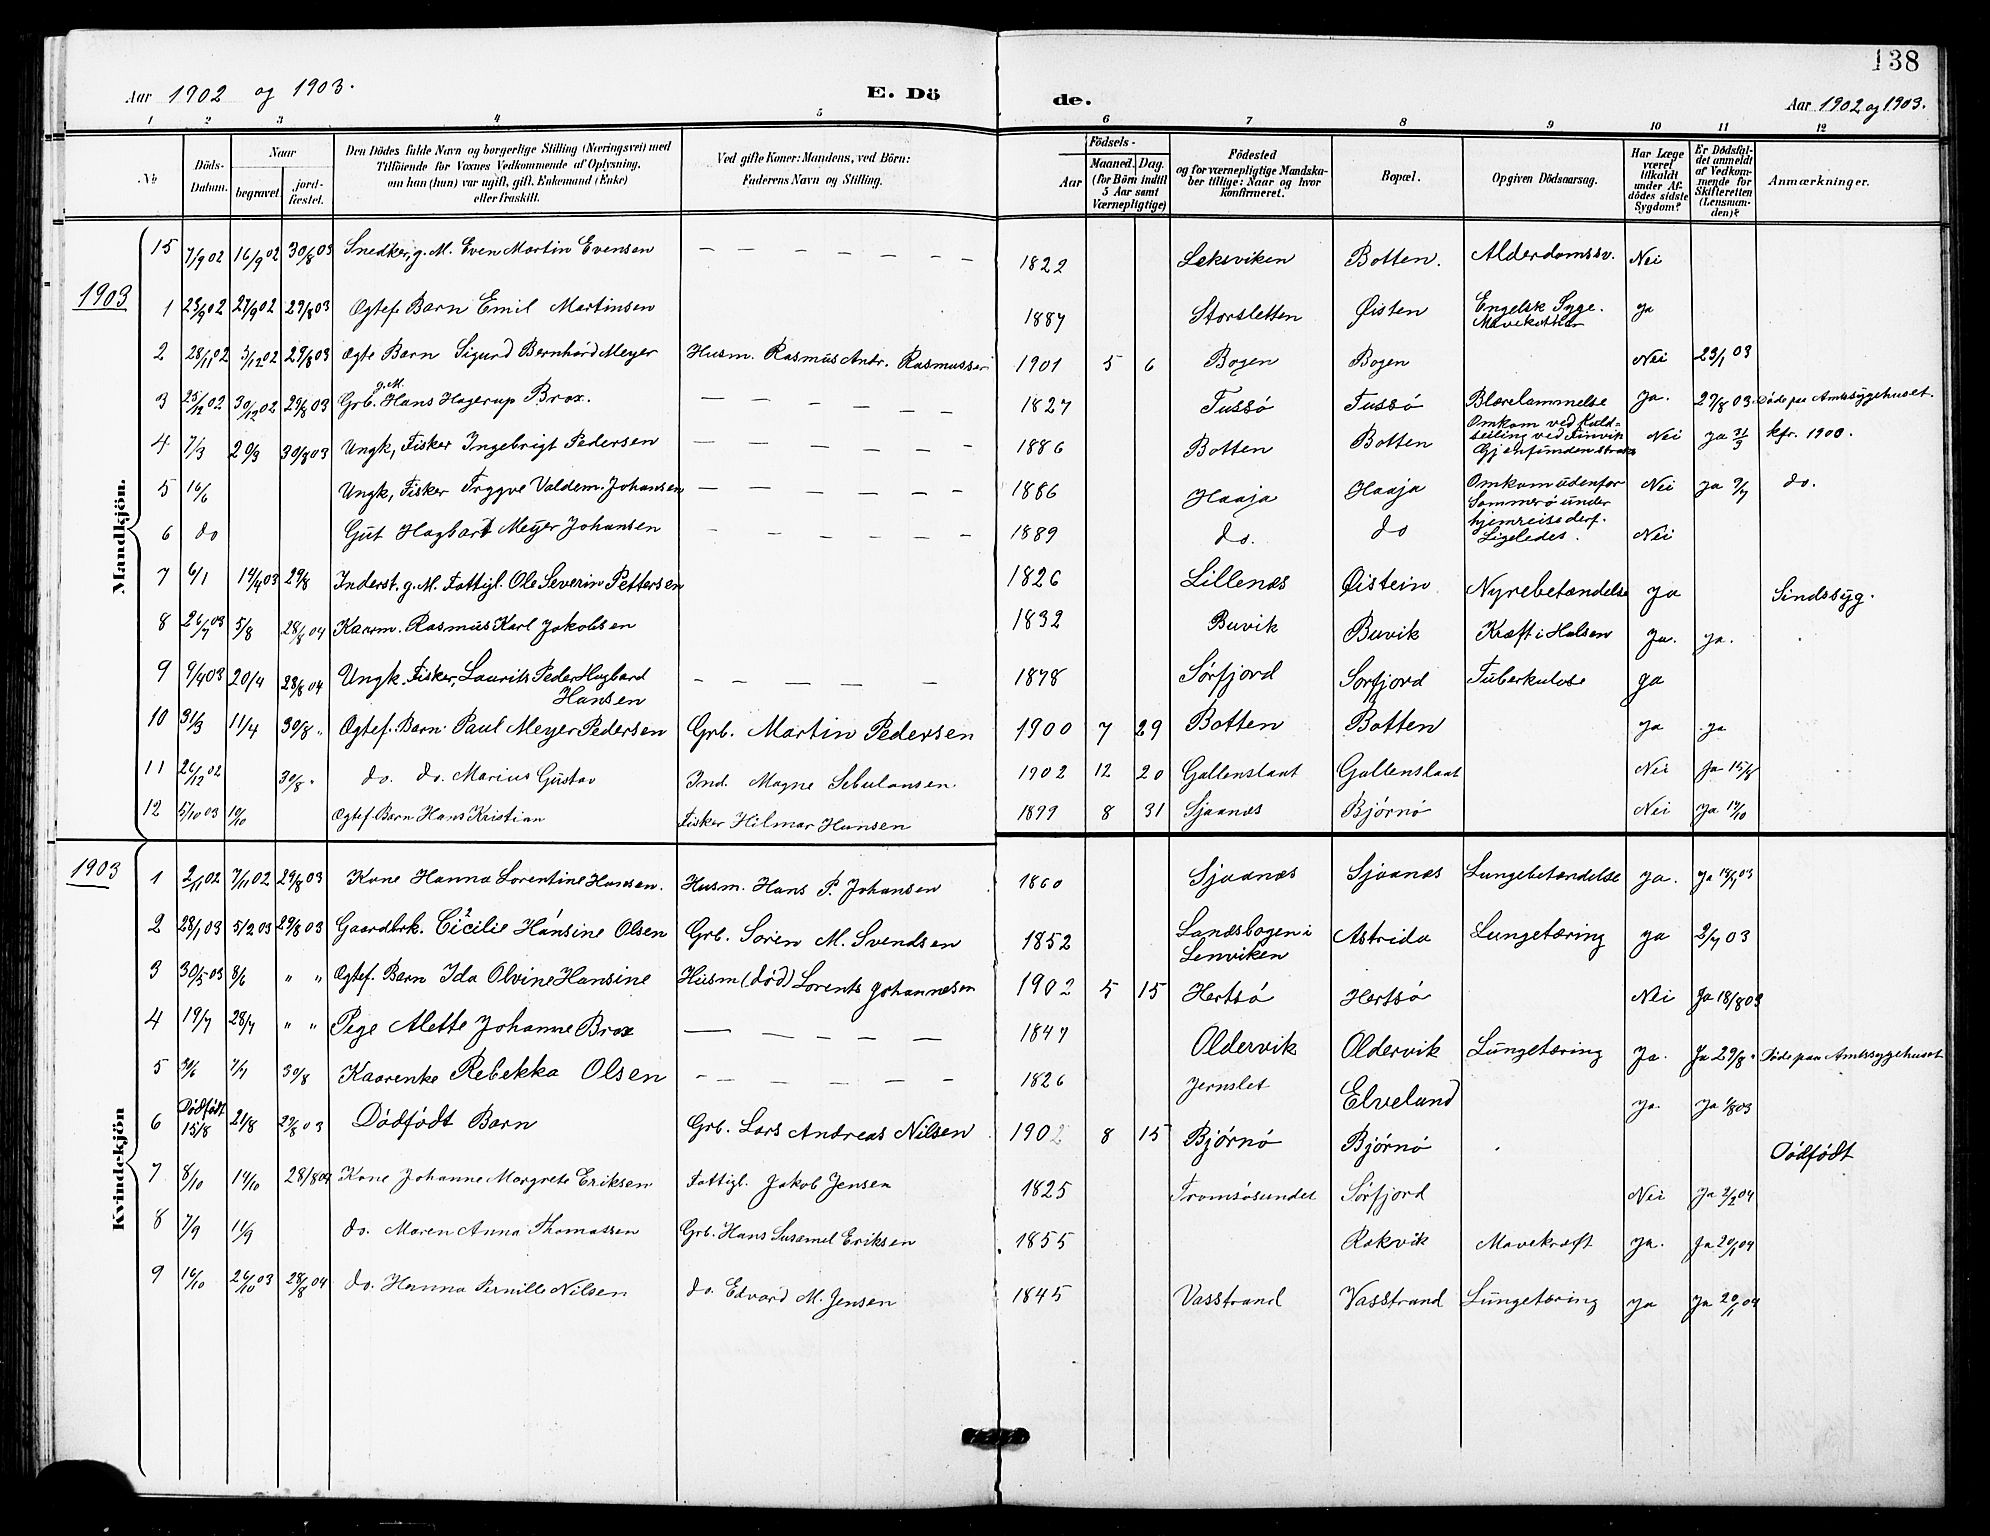 138
Aar 1902 og 1903.
E. Dö
de.
Aar 1902 og 1903.
1 2 3 4 5 6 7 8 9 10 11 12
No
Döds-Datum.
Naar
begravet
jord-fæstet.
Den Dödes fulde Navn og borgerlige Stilling (Næringsvei) med
Tilföiende for Voxnes Vedkommende af Oplysning,
om han (hun) var ugift, gift, Enkemand (Enke)
eller fraskilt.
Ved gifte Koner: Mandens, ved Börn:
Faderens Navn og Stilling.
Födsels-
Aar
Maaned. Dag.
(for Börn indtil
5 Aar samt
Værnepligtige)
Födested
og for værnepligtige Mandska-
ber tillige: Naar og hvor
konfirmeret.
Bopæl.
Opgiven Dödsaarsag.
Har Læge
været
tilkaldt
under Af-
dödes sidste
Sygdom?
Er Dödsfal-
det anmeldt
af Vedkom-
mende for
Skifteretten
(Lensman-
den)?
Anmærkninger.
Mandkjön.
15 7/9 02 16/9 02 30/8 03 Snedker, g. M. Even Martin Evensen — — — — — — 1822 Leksviken Botten. Alderdomssv. Nei
1903
1 23/9 02 27/9 02 29/8 03 Ogtef. Barn Emil Martinsen 1887 Storsletten Øisten Engelsk Syge. ja
2 28/11 02 3/12 02 29/8 03 Ogte Barn Sigurd Bernhard Meyer Husm. Rasmus Andr. Rasmussen 1901 5 6 Bogen Bogen Nei 23/1 03
3 25/12 02 30/12 02 29/8 03 Grb. g. M. Hans Hagerup Brox. — — — — — — 1827 Tussö Tussö Blærelammelse Ja. 27/8 03. Døde paa Amtssygehuset.
4 7/3 20/3 30/8 03 Ungk, Fisker Ingebrigt Pedersen — — — — — — 1886 Botten Botten Omkom ved Kuld-
seiling ved Finvik
Gjenfunden strax Nei ja 31/3 kfr. 1900.
5 16/6 Ungk, Fisker Trygve Valdem. Johansen — — — — — — 1886 Haaja Haaja Omkom udenfor
Sommerø under
hjemreise derf. Nei ja 7/7 do.
6 do Gut Hagbart Meyer Johansen — — — — — — 1889 do. do Ligeledes. Nei
7 6/1 14/4 03 29/8 Inderst, g. M. Fattigl. Ole Severin Pettersen 1826 Lillenæs Øistein Nyrebetændelse ja Sindssyg.
8 26/7 03 5/8 28/8 04 Kaarm. Rasmus Karl Jakobsen 1832 Buvik Buvik Kræft i Halsen Ja. ja.
9 9/4 03 20/4 28/8 04 Ungk. Fisker, Laurits Peder Hagbard
Hansen — — — — — 1878 Sørfjord Sorfjord Tuberkulose ja
10 31/3 11/4 30/8 " Ogtef. Barn. Paul Meyer Pedersen Grb. Martin Pedersen 1900 7 29 Botten Botten ja ja
11 26/12 02 30/8 " do. do. Marius Gustav Ind. Magne Sebulonsen. 1902 12 20 Gallenslaat Gallenslaat Nei
12 5/10 03 10/10 Ogtef. Barn Hans Kristian Fisker Hilmar Hansen 1899 8 31 Sjaanæs Bjørnø Nei
1903
Kvindekjön
1 2/11 02 7/11 02 29/8 03 Kone Hanna Lorentine Hansen. Husm. Hans P. Johansen 1860 Sjaanæs Sjaanæs Lungebetændelse ja.
2 28/1 03 5/2 03 29/8 03 Gaardbrk. Cicilie Hansine Olsen Grb. Sören M. Svendsen 1852 Sandsbogen i
Lenviken Astrida Lungetæring ja 2/7 03
3 30/5 03 8/6 " " Ogtef. Barn Ida Olvine Hansine Husm (død) Lorents Johannesen 1902 5 15 Hertsö Hertsö Nei Ja 18/8 03
4 19/7 28/7 " " Pige Alette Johanne Brox — — — — — 1847 Oldervik Oldervik Lungetæring Ja. Ja 29/8 " Døde paa Amtssygehuset
5 30/6 7/7 30/8 Kaarenke Rebekka Olsen — — — — — — 1826 Jernslet Elveland ja.
6 Dødfødt
15/8 21/8 29/8 03 Dødfødt Barn Grb. Lars Andreas Nilsen 1902 8 15 Bjørnø Bjørnø Dødfødt
7 8/10 14/10 28/8 04 Kone Johanne Margrete Eriksen Fattigl. Jakob Jensen 1825 Tromsøsundet Sørfjord Nei ja 2/2 04
8 7/9 11/9 do. Maren Anna Thomassen Grb. Hans Susamel Eriksen 1855 Rakvik Mavekræft ja. Ja 20/1 04
9 16/10 26/10 03 28/8 04 do. Hanna Pernille Nilsen do. Edvard M. Jensen 1845 Vasstrand Vasstrand Lungetæring ja ja 20/1 04